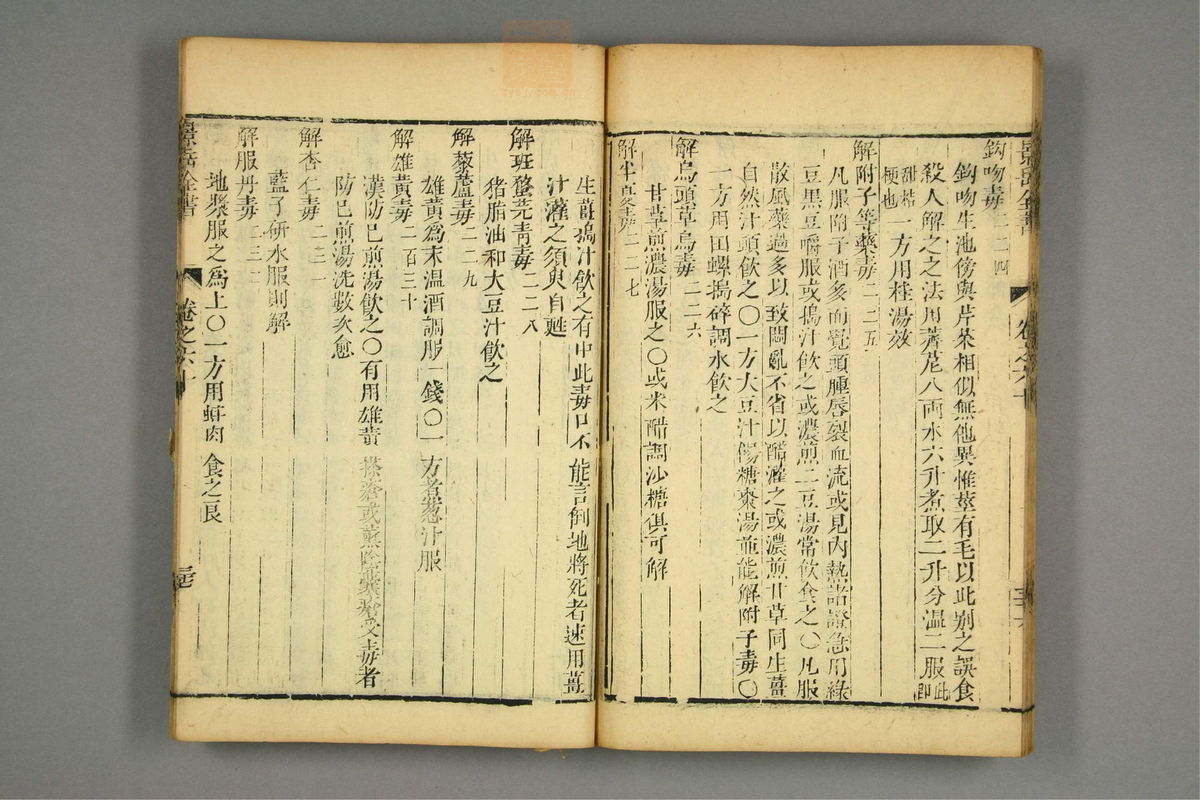 景岳全書
卷之六十
鈎吻毒二二四
鈎吻生池傍與芹菜相似無他異惟莖有毛以此别之誤食
殺人解之之法用薺苨八兩水六升煮取二升分温二服此即
甜桔梗也一方用桂湯效
解附子等藥毒二二五
凡服附子酒多而覺頭腫唇裂血流或見内熱諸證急用綠
豆黑豆嚼服或搗汁飲之或濃煎二豆湯常飲食之〇凡服
散風藥過多以致悶亂不省以醋灌之或濃煎甘草同生薑
自然汁頭飲之〇一方大豆汁餳糖棗湯並能解附子毒〇
一方用田螺搗碎調水飲之
解烏頭草烏毒二二六
甘草煎濃湯服之〇或米醋調沙糖俱可解
解半夏毒二二七
生薑搗汁飲之有中此毒口不能言倒地將死者速用薑
汁灌之須臾自甦
解班蝥芫青毒二二八
猪脂油和大豆汁飲之
解藜蘆毒二二九
雄黃爲末温酒調服一錢〇一方煮葱汁服
解雄黃毒二百三十
漢防已煎湯飲之〇有用雄黃搽瘡或熏陰囊受毒者
防已煎湯洗數次愈
解杏仁毒二三一
藍子研水服則解
解服丹毒二三二
地漿服之爲上〇一方用蚌肉食之良
景岳全書
卷之六十